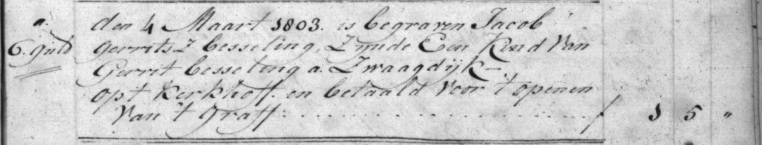 a.
6. Guld
den 4 Maart 1803. is begraven Jacob
Gerrits Z besseling, Zijnde Een Kind Van
Gerrit besseling a. Zwaagdijk
opt Kerkhoff. en betaald voor 't openen
Van 't Graff . . . . . . . . . . . . . . . . f 1 5 "